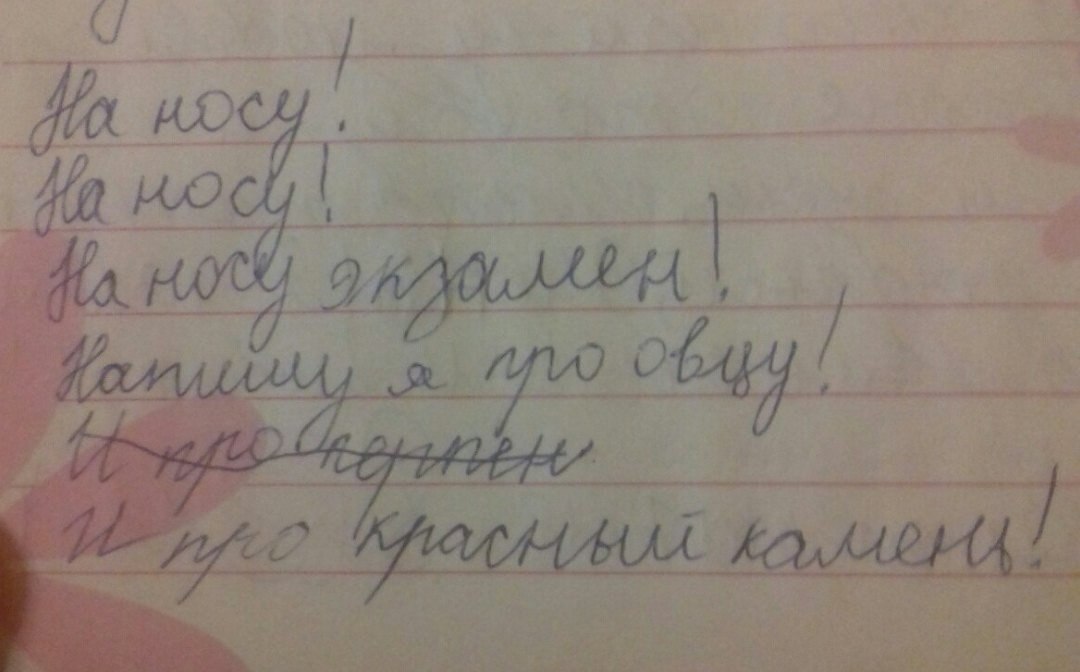 На носу!
На носу!
На носу экзамен!
Напишу я про овцу!
И про
И про красный камень!